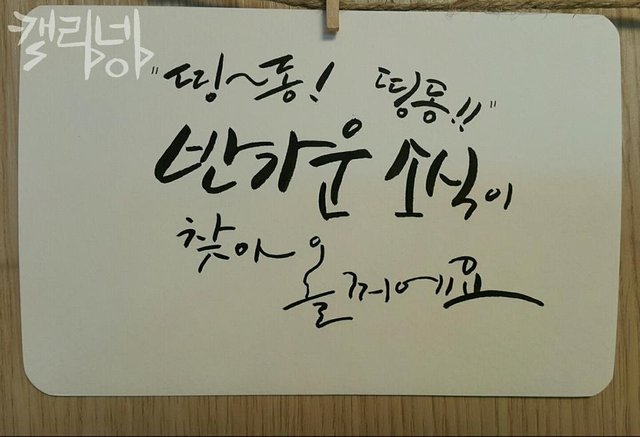 캘림넹
"띵~동! 띵동!!"
반가운 소식이
찾아
올꺼에요